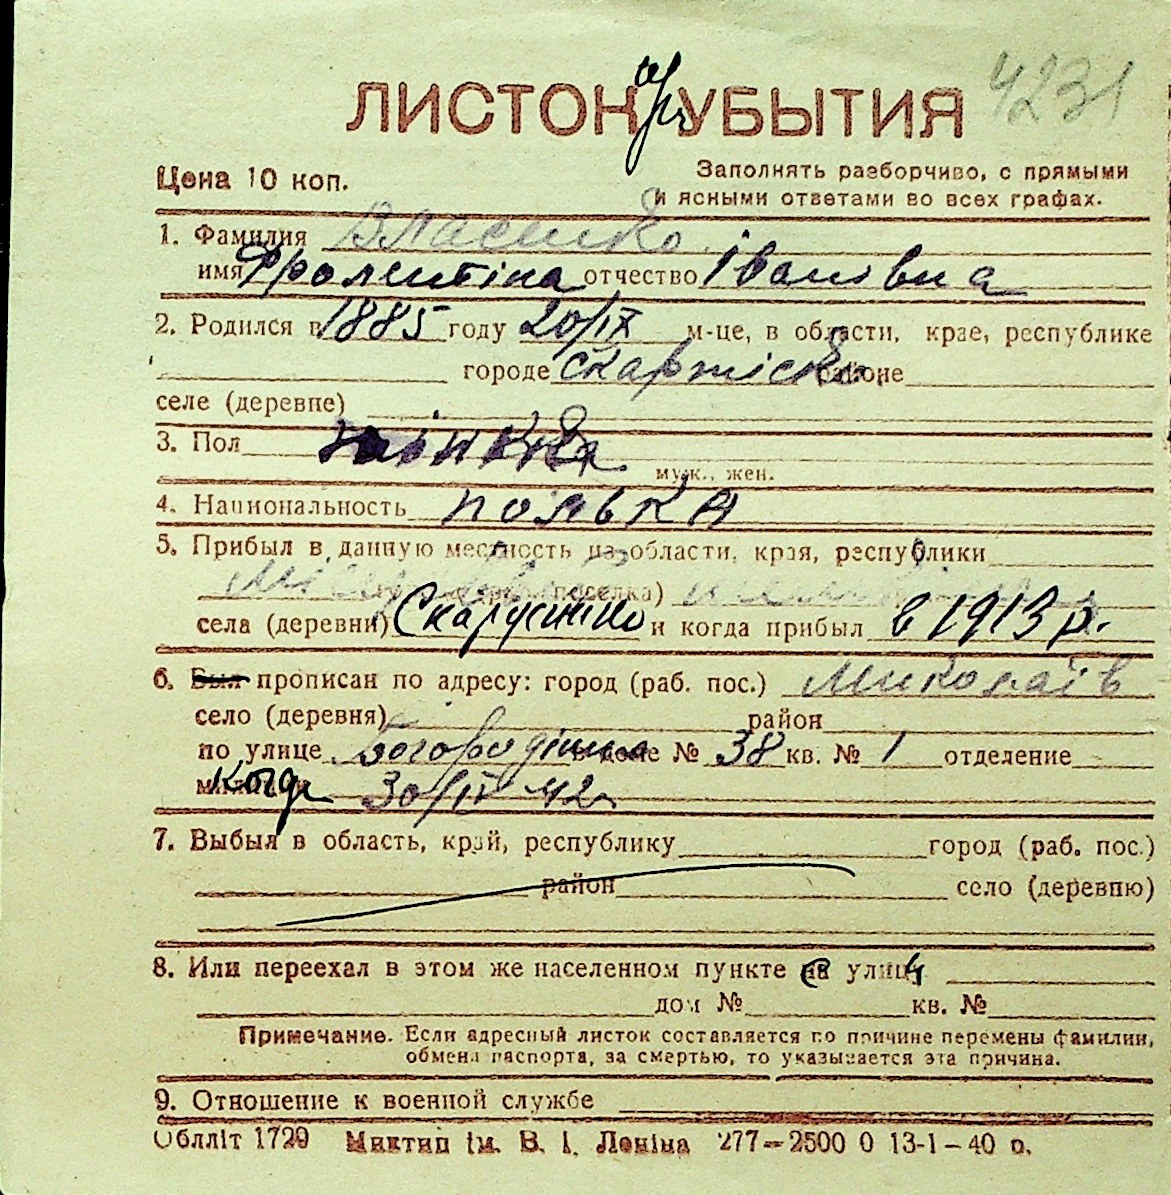 ЛИСТОК УБЫТИЯ 4231
Цена 10 коп.
Заполнять разборчиво, с прямыми
и ясными ответами во всех графах.
1. Фамилия Власенко
имя Фролентіна отчество Івановна
2. Родился в 1885 году 20/IX м-це, в области, крае, республике
городе районе
селе (деревне)
3. Пол жінка
муж., жен.
4. Национальность полька
5. Прибыл в данную местность из области, края, республики
поселка)
села (деревни) и когда прибыл в 1913 р.
6. Был прописан по адресу: город (раб. пос.) Миколаїв
село (деревня) район
по улице в доме № 38 кв. № 1 отделение
милиции когда 30/IV 42
7. Выбыл в область, край, республику город (раб. пос.)
район село (деревню)
8. Или переехал в этом же населенном пункте на улицу
дом № кв. №
Примечание. Если адресный листок составляется по причине перемены фамилии,
обмена паспорта, за смертью, то указывается эта причина.
9. Отношение к военной службе
Облліт 1729 Миктип ім. В. І. Леніна 277—2500 0 13-1-40 р.